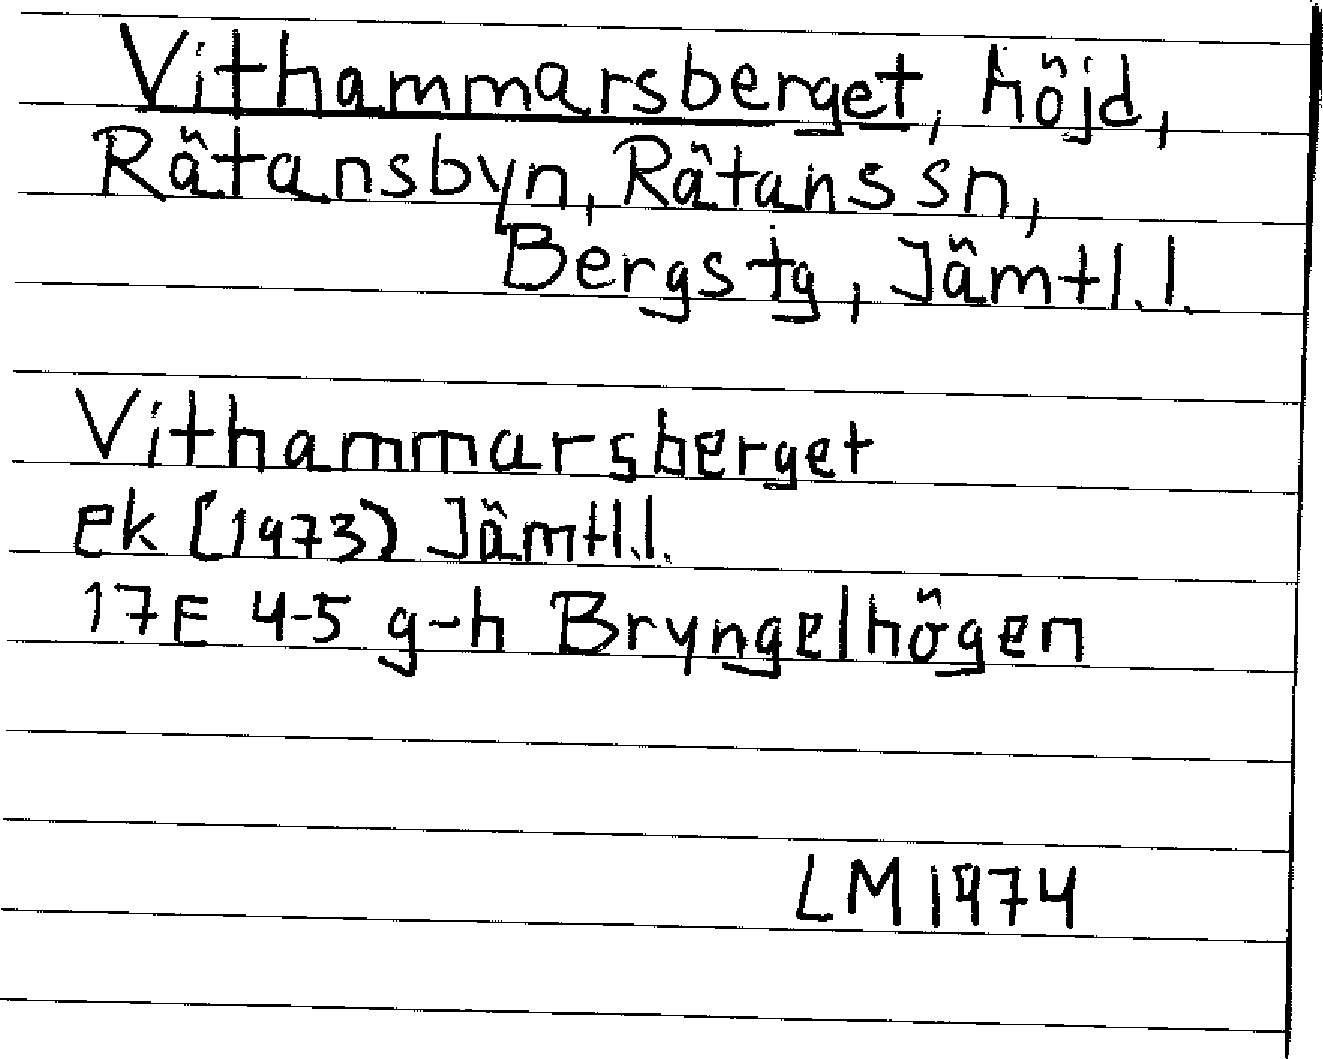 Vithammarsberget, höjd,
Rätansbyn, Rätans sn,
Bergs tg, Jämtl.l.
Vithammarsberget
ek (1973) Jämtl.l.
17E 4-5 g-h Bryngelhögen
LM 1974